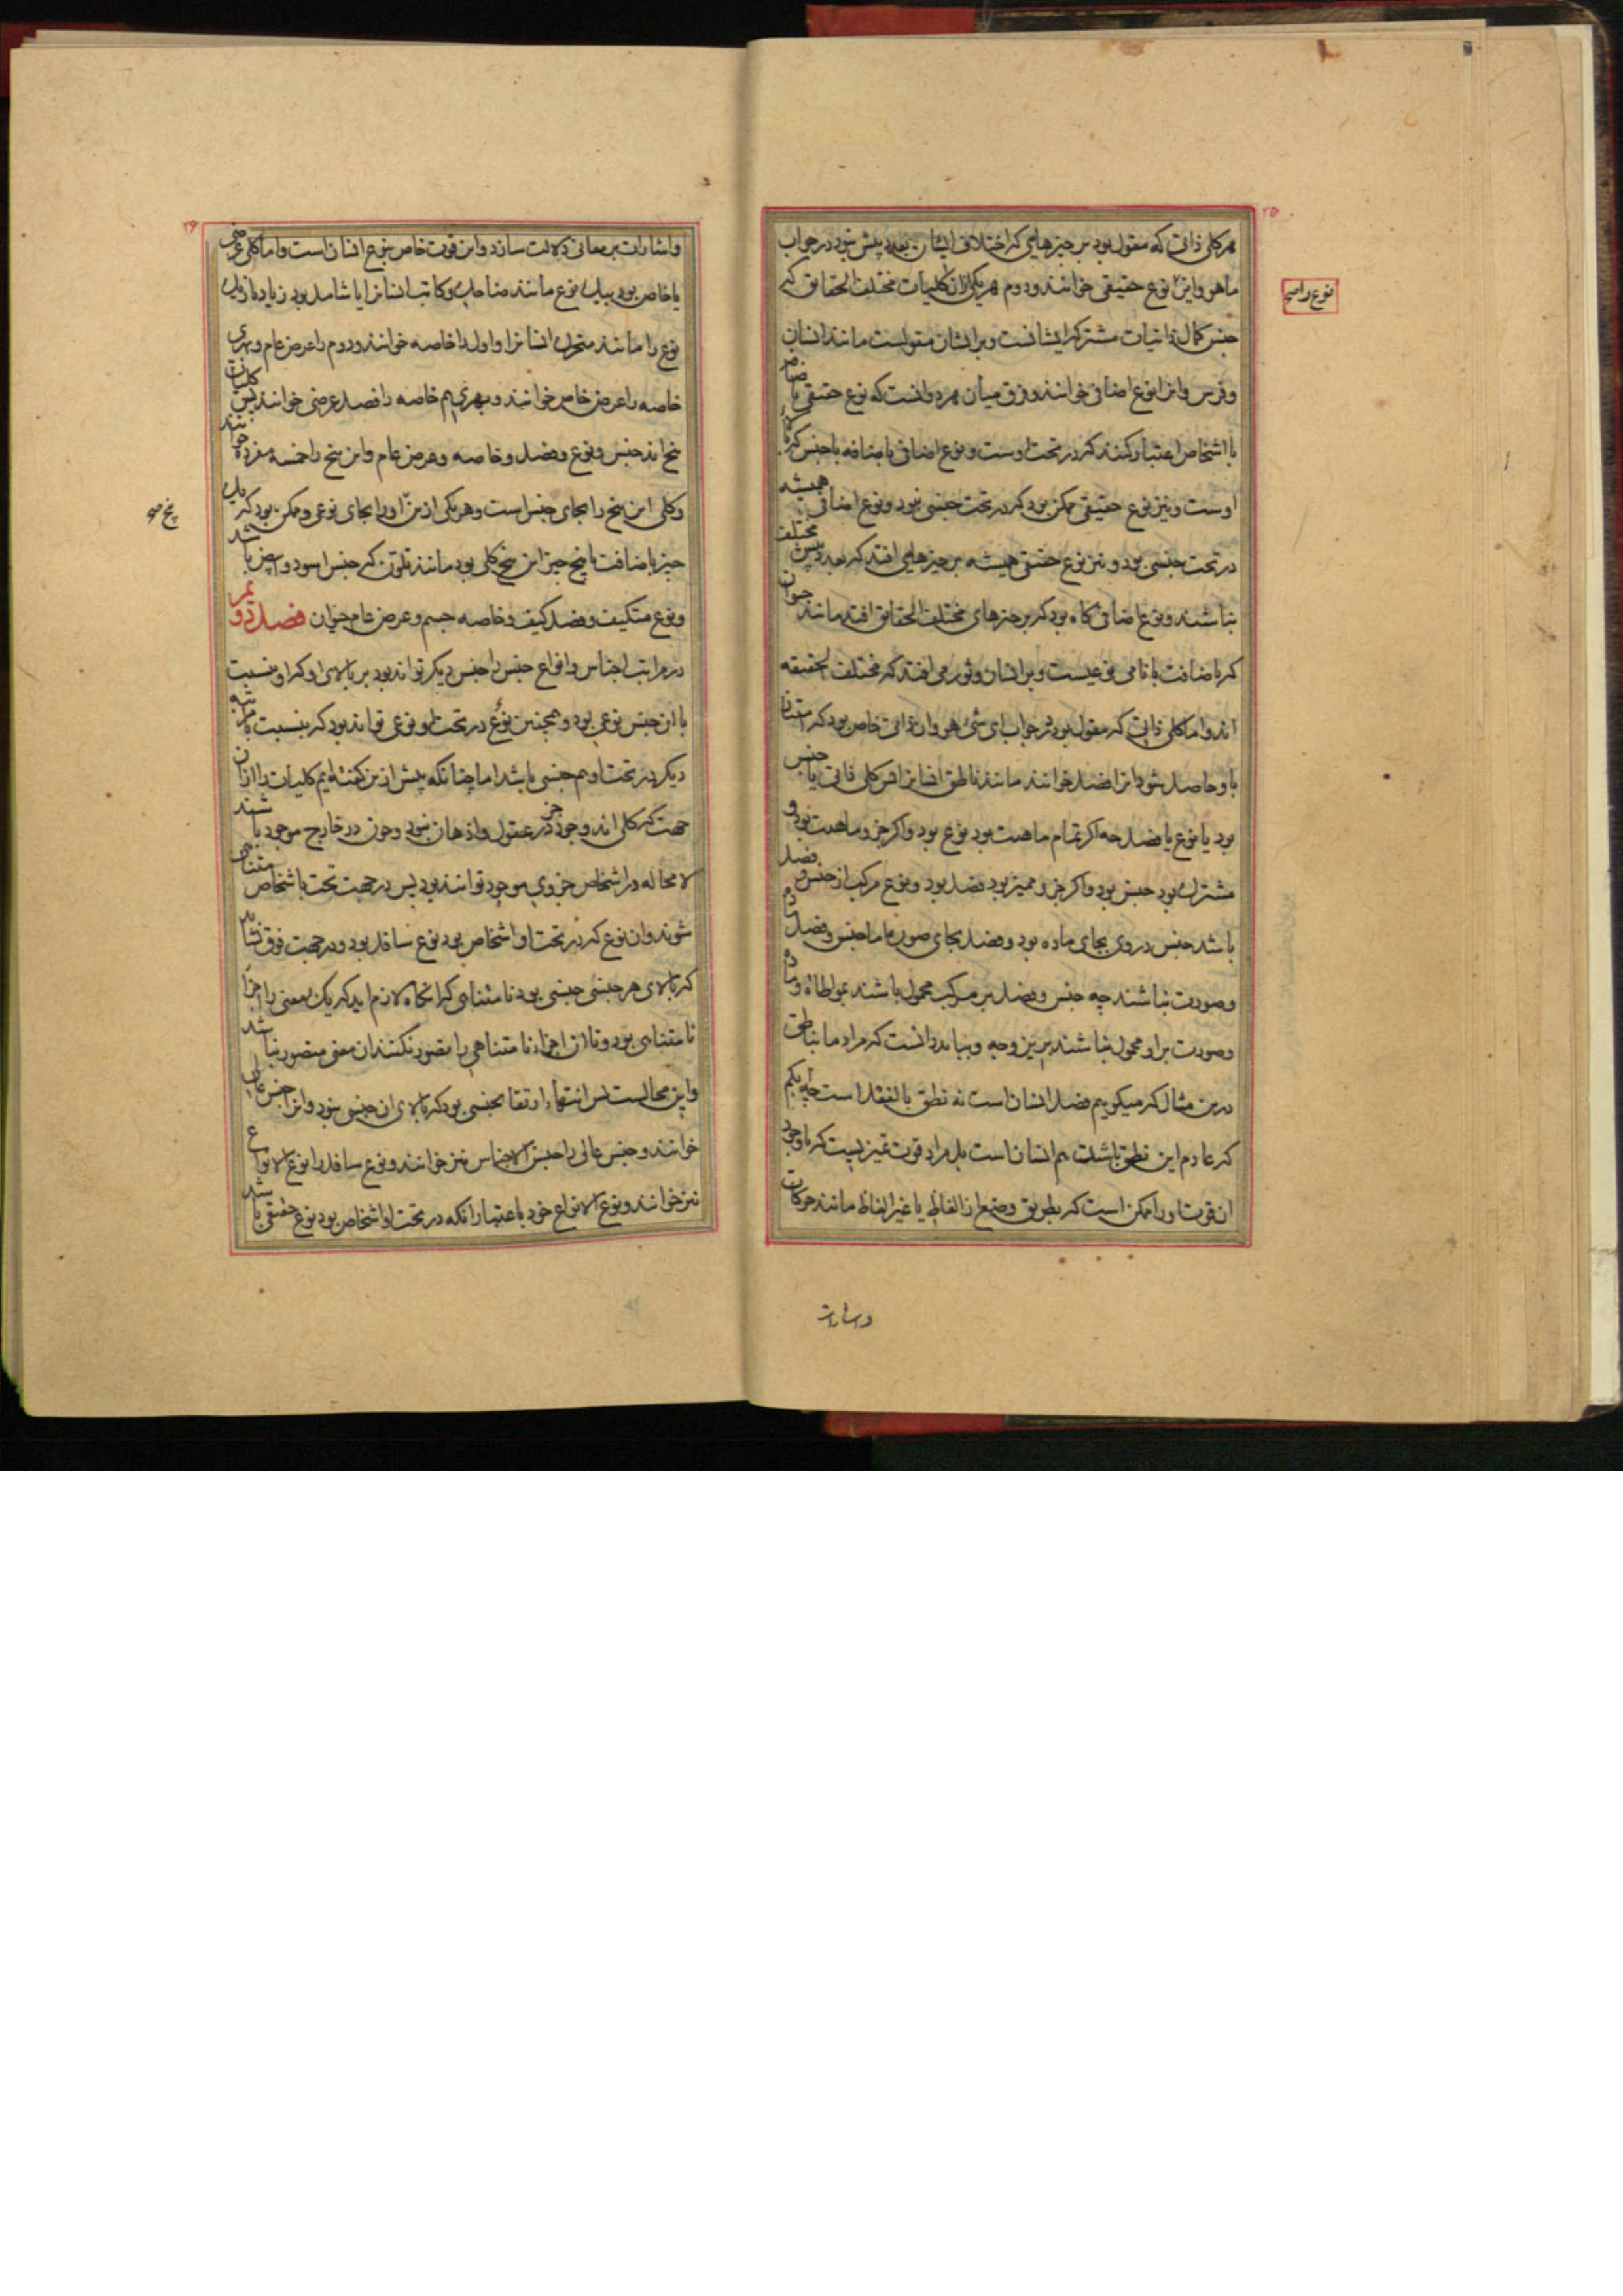 ۲۵
هر کلی ذاتی که مقول بود بر چیزهایی که اختلاف ایشان بعدد پیش نبود در جواب
ماهو واین نوع حقیقی خوانند ودوم هر یکی ازان کلیات مختلف الحقایق که
نوع راصه
جنس کمال ذاتیات مشترک ایشانست وبرایشان مقولست مانند انسان
وفرس وانرا نوع اضافی خوانند وفرق میان هر دو انست که نوع حقیقی باضافه
با اشخاص اعتبار کنند که در تحت اوست ونوع اضافی باضافه با جنس که بالای
اوست ونیز نوع حقیقی ممکن بود که در تحت جنسی نبود ونوع اضافی همیشه
در تحت جنسی بود ونیز نوع حقیقی همیشه بر چیزهایی افتد که بعدد پیش مختلف
نباشند ونوع اضافی گاه بود که بر چیزهای مختلف الحقایق افتد مانند حیوان
که باضافت با نامی نوعیست وبر انسان وثور می افتد که مختلف الحقیقه
اند واما کلی ذاتی که مقول بود در جواب ای شیء هو وان ذاتی خاص بود که امتیاز
باو حاصل شود انرا فصل خوانند مانند ناطق انسانرا پس کلی ذاتی یا جنس
بود یا نوع یا فصل چه اگر تمام ماهیت بود نوع بود واگر جزو ماهیت بود و
مشترک بود جنس بود واگر جزو ممیز بود فصل بود ونوع مرکب از جنس و فصل
باشد جنس در وی بجای ماده بود وفصل بجای صورت اما جنس وفصل ماده
وصورت نباشند چه جنس وفصل بر مرکب محمول باشند بمواطاة وماده
وصورت براو محمول نباشند برین وجه وبباید دانست که مراد ما بناطق
درین مثال که میگوییم فصل انسان است نه نطق بالفعل است چه ابکم
که عادم این نطق باشد هم انسان است بل مراد قوت تمیزیست که باوجود
ان قوت اورا ممکن است که بطریق وضع از الفاظ یا غیر الفاظ مانند حرکات
واشارات
۲۶
واشارات بر معانی دلالت سازد واین قوت خاص بنوع انسان است واما کلی عرضی
یا خاص بود بیک نوع مانند ضاحک وکاتب انسانرا یا شامل بود زیاده از یک
نوع را مانند متحرک انسانرا واول را خاصه خوانند ودوم را عرض عام وبهری
خاصه را عرض خاص خوانند وبهری هم خاصه را فصل عرضی خوانند پس کلیات
پنج اند جنس ونوع وفصل وخاصه وعرض عام واین پنج را خمسه مفرده خوانند
وکلی این پنج را بجای جنس است وهر یکی ازین اورا بجای نوعی وممکن بود که یک
پنج
چیز باضافت با پنج چیز این پنج کلی بود مانند تلون که جنس اسود وابیض باشد
ونوع متکیف وفصل کیف وخاصه جسم وعرض عام حیوان فصل دویم
در مراتب اجناس وانواع جنس را جنس دیگر تواند بود بر بالای او که او بنسبت
با ان جنس نوعی بود وهمچنین نوع در تحت او نوعی تواند بود که بنسبت با مرتبه
دیگر در تحت او هم جنسی باشد اما چنانکه پیش ازین گفته ایم کلیات را ازان
جهت که کلی اند وجود جز در عقول واذهان نبود وچون در خارج موجود باشند
لا محاله در اشخاص جزوی موجود توانند بود پس در جهت تحت باشخاص متناهی
شوند وان نوع که در تحت او اشخاص بود نوع سافل بود ودر جهت فوق نشاید
که بالای هر جنسی جنسی بود نا متناهی که انگاه لازم اید که یک معنی را اجزاء
نا متناهی بود وتا ان اجزاء نا متناهی را تصور نکنند ان معنی متصور نباشد
واین محالست پس انتهاء ارتقا بجنسی بود که بالای ان جنسی نبود وانرا جنس عالی
خوانند وجنس عالی را جنس الاجناس نیز خوانند ونوع سافل را نوع الانواع
نیز خوانند ونوع الانواع خود باعتبار انکه در تحت او اشخاص بود نوع حقیقی باشد